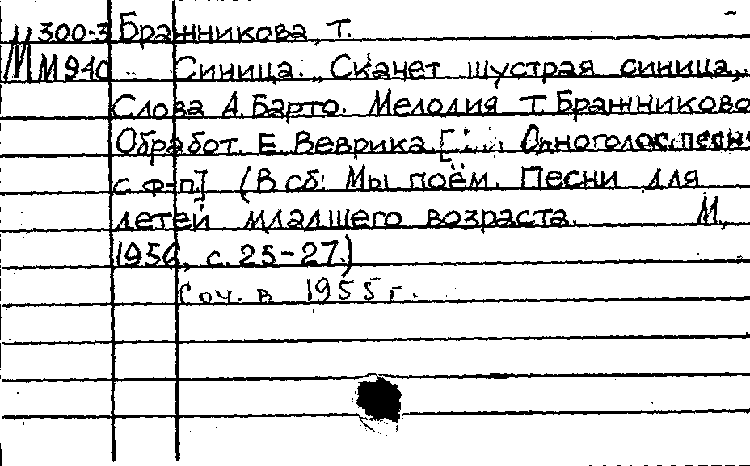 М 300-3 Бражникова, Т.
М 940 Синица. "Скачет шустрая синица,"
Слова А. Барто. Мелодия Т. Бражниково
Обработ. Е. Веврика. [ Одноголос. песн
с ф-п] (В сб: Мы поём. Песни для
детей младшего возраста. М,
1956, с. 25-27.)
Соч. в 1955 г.